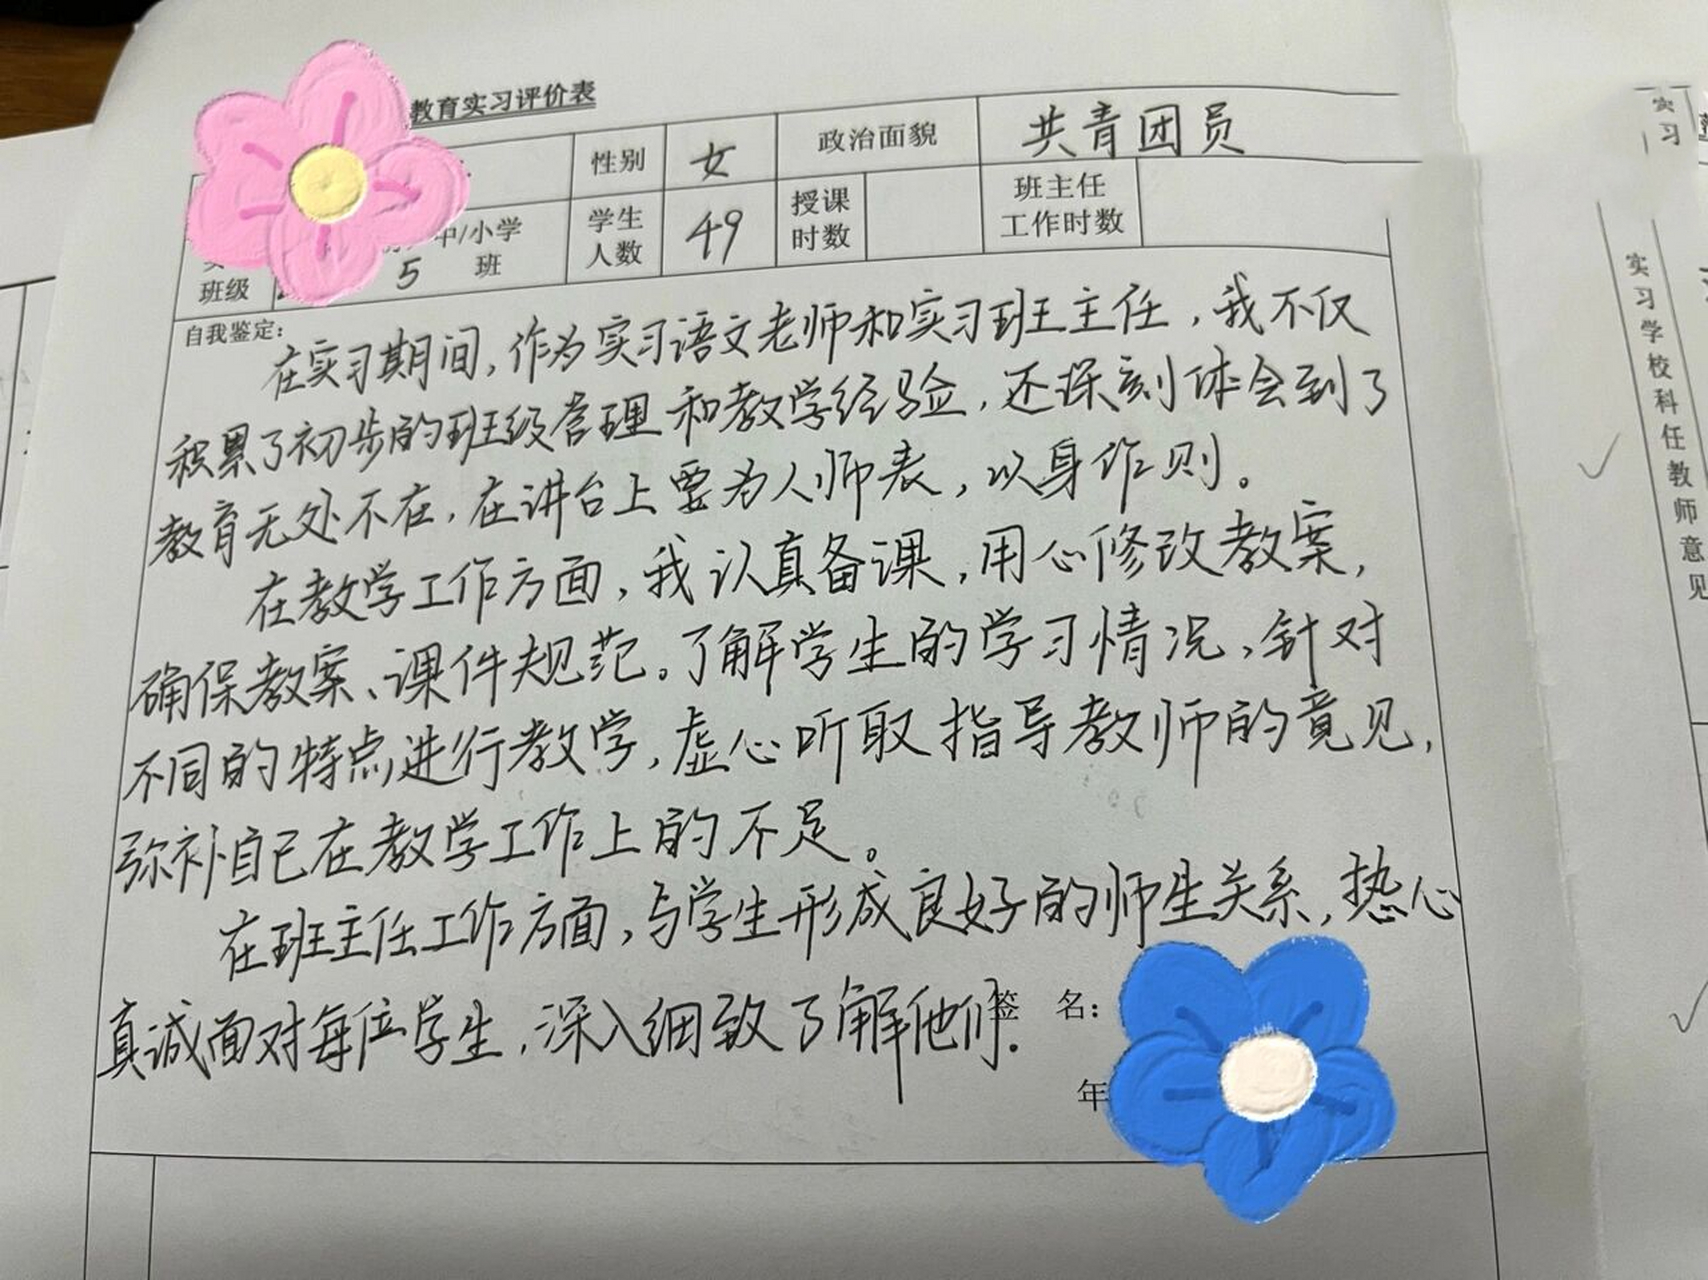 教育实习评价表
性别 女 政治面貌 共青团员
中/小学 学生人数 49 授课时数 班主任工作时数
班级 5 班
自我鉴定:
在实习期间,作为实习语文老师和实习班主任,我不仅
积累了初步的班级管理和教学经验,还深刻体会到了
教育无处不在,在讲台上要为人师表,以身作则。
在教学工作方面,我认真备课,用心修改教案,
确保教案、课件规范。了解学生的学习情况,针对
不同的特点进行教学,虚心听取指导教师的意见,
弥补自己在教学工作上的不足。
在班主任工作方面,与学生形成良好的师生关系,热心
真诚面对每位学生,深入细致了解他们.
签 名:
年
实习
实习学校科任教师意见